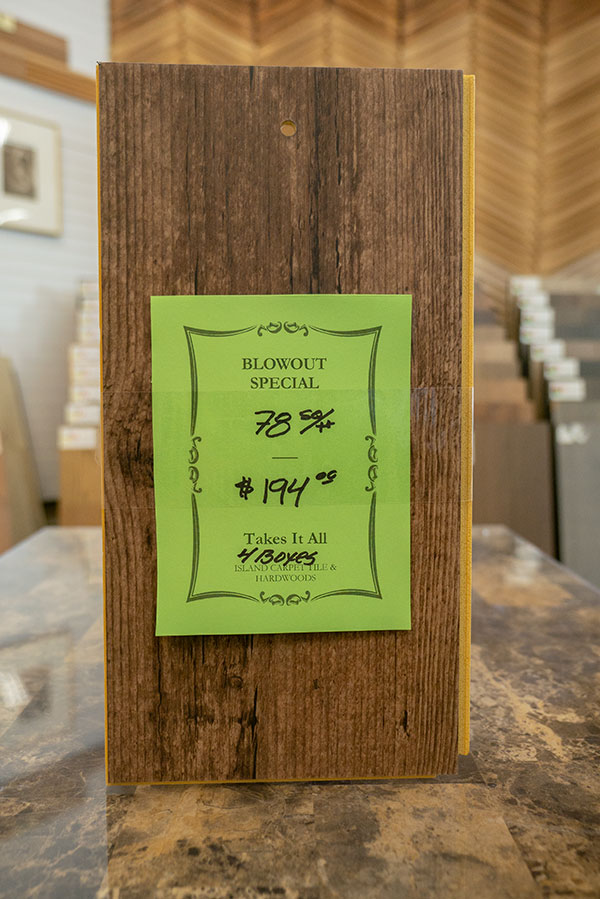 BLOWOUT
SPECIAL
78 SQ/FT
$194 00
Takes It All
4 Boxes
ISLAND CARPET TILE &
HARDWOODS